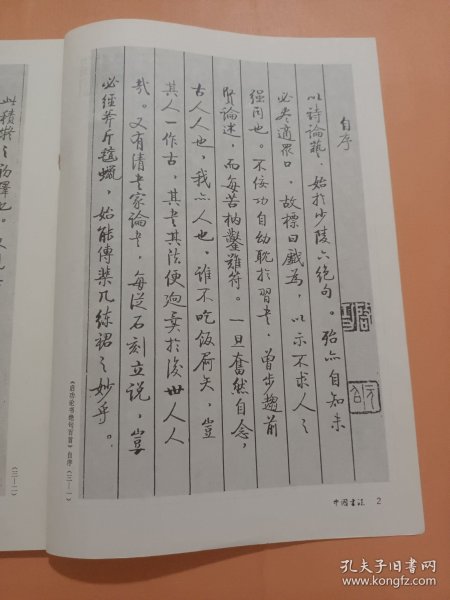 自序
以詩論藝，始於少陵六絕句。殆亦自知未
必尽適眾口，故標曰戲為，以示不求人之
强同也。不佞功自幼耽於習書，曾步趨前
賢論述，而每苦枘鑿難符。一旦奮然自念，
古人人也，我亦人也，誰不吃飯屙矢，豈
其人一作古，其書其法便迥異於後世人人
哉。又有清書家論書，每從石刻立說，豈
必經斧斤氈蠟，始能傳棐几練裙之妙乎。
《启功论书绝句百首》自序（三—一）
（三—二）
中国书法 2
孔夫子旧书网
www.kongfz.com